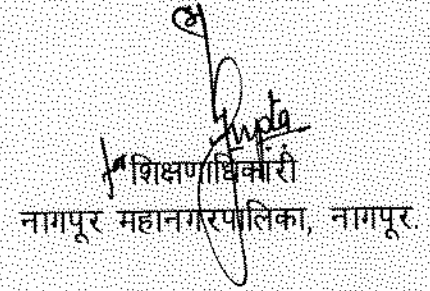 Gupta
शिक्षणाधिकारी
नागपूर महानगरपालिका, नागपूर.